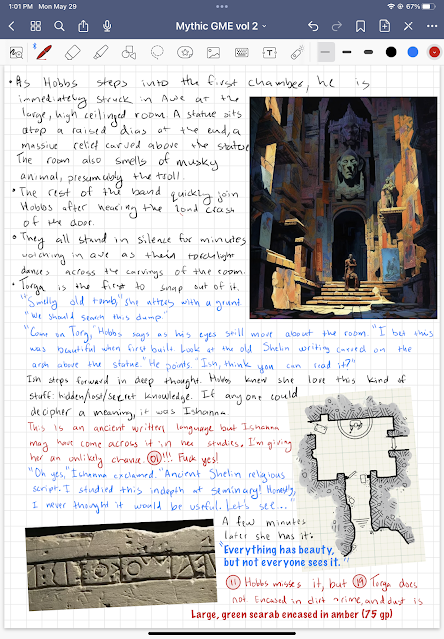 1:01 PM Mon May 29
67%
Mythic GME vol 2
• As Hobbs steps into the first chamber, he is
immediately struck in awe at the
large, high ceilinged room. A statue sits
atop a raised dias at the end, a
massive relief carved above the statue.
The room also smells of musky
animal, presumably the troll.
• The rest of the band quickly join
Hobbs after hearing the loud crash
of the door.
• They all stand in silence for minutes
watching in awe as their torchlight
dances across the carvings of the room.
• Torga is the first to snap out of it.
"Smelly old tomb," she utters with a grunt.
"We should search this dump."
"Come on Torg," Hobbs says as his eyes still move about the room. "I bet this
was beautiful when first built. Look at the old Shelin writing carved on the
arch above the statue." He points. "Ish, think you can read it?"
Ish steps forward in deep thought. Hobbs knew she love this kind of
stuff: hidden/lost/secret knowledge. If anyone could
decipher a meaning, it was Ishanna.
This is an ancient written language but Ishanna
may have come across it in her studies. I'm giving
her an unlikely chance. 01!!! Fuck yes!
"Oh yes," Ishanna exclaimed. "Ancient Shelin religious
script. I studied this indepth at seminary! Honestly,
I never thought it would be useful. Let's see..."
A few minutes
later she has it.
"Everything has beauty,
but not everyone sees it."
11 Hobbs misses it, but 19 Torga does
not. Encased in dirt + grime, and dust is
Large, green scarab encased in amber (75 gp)